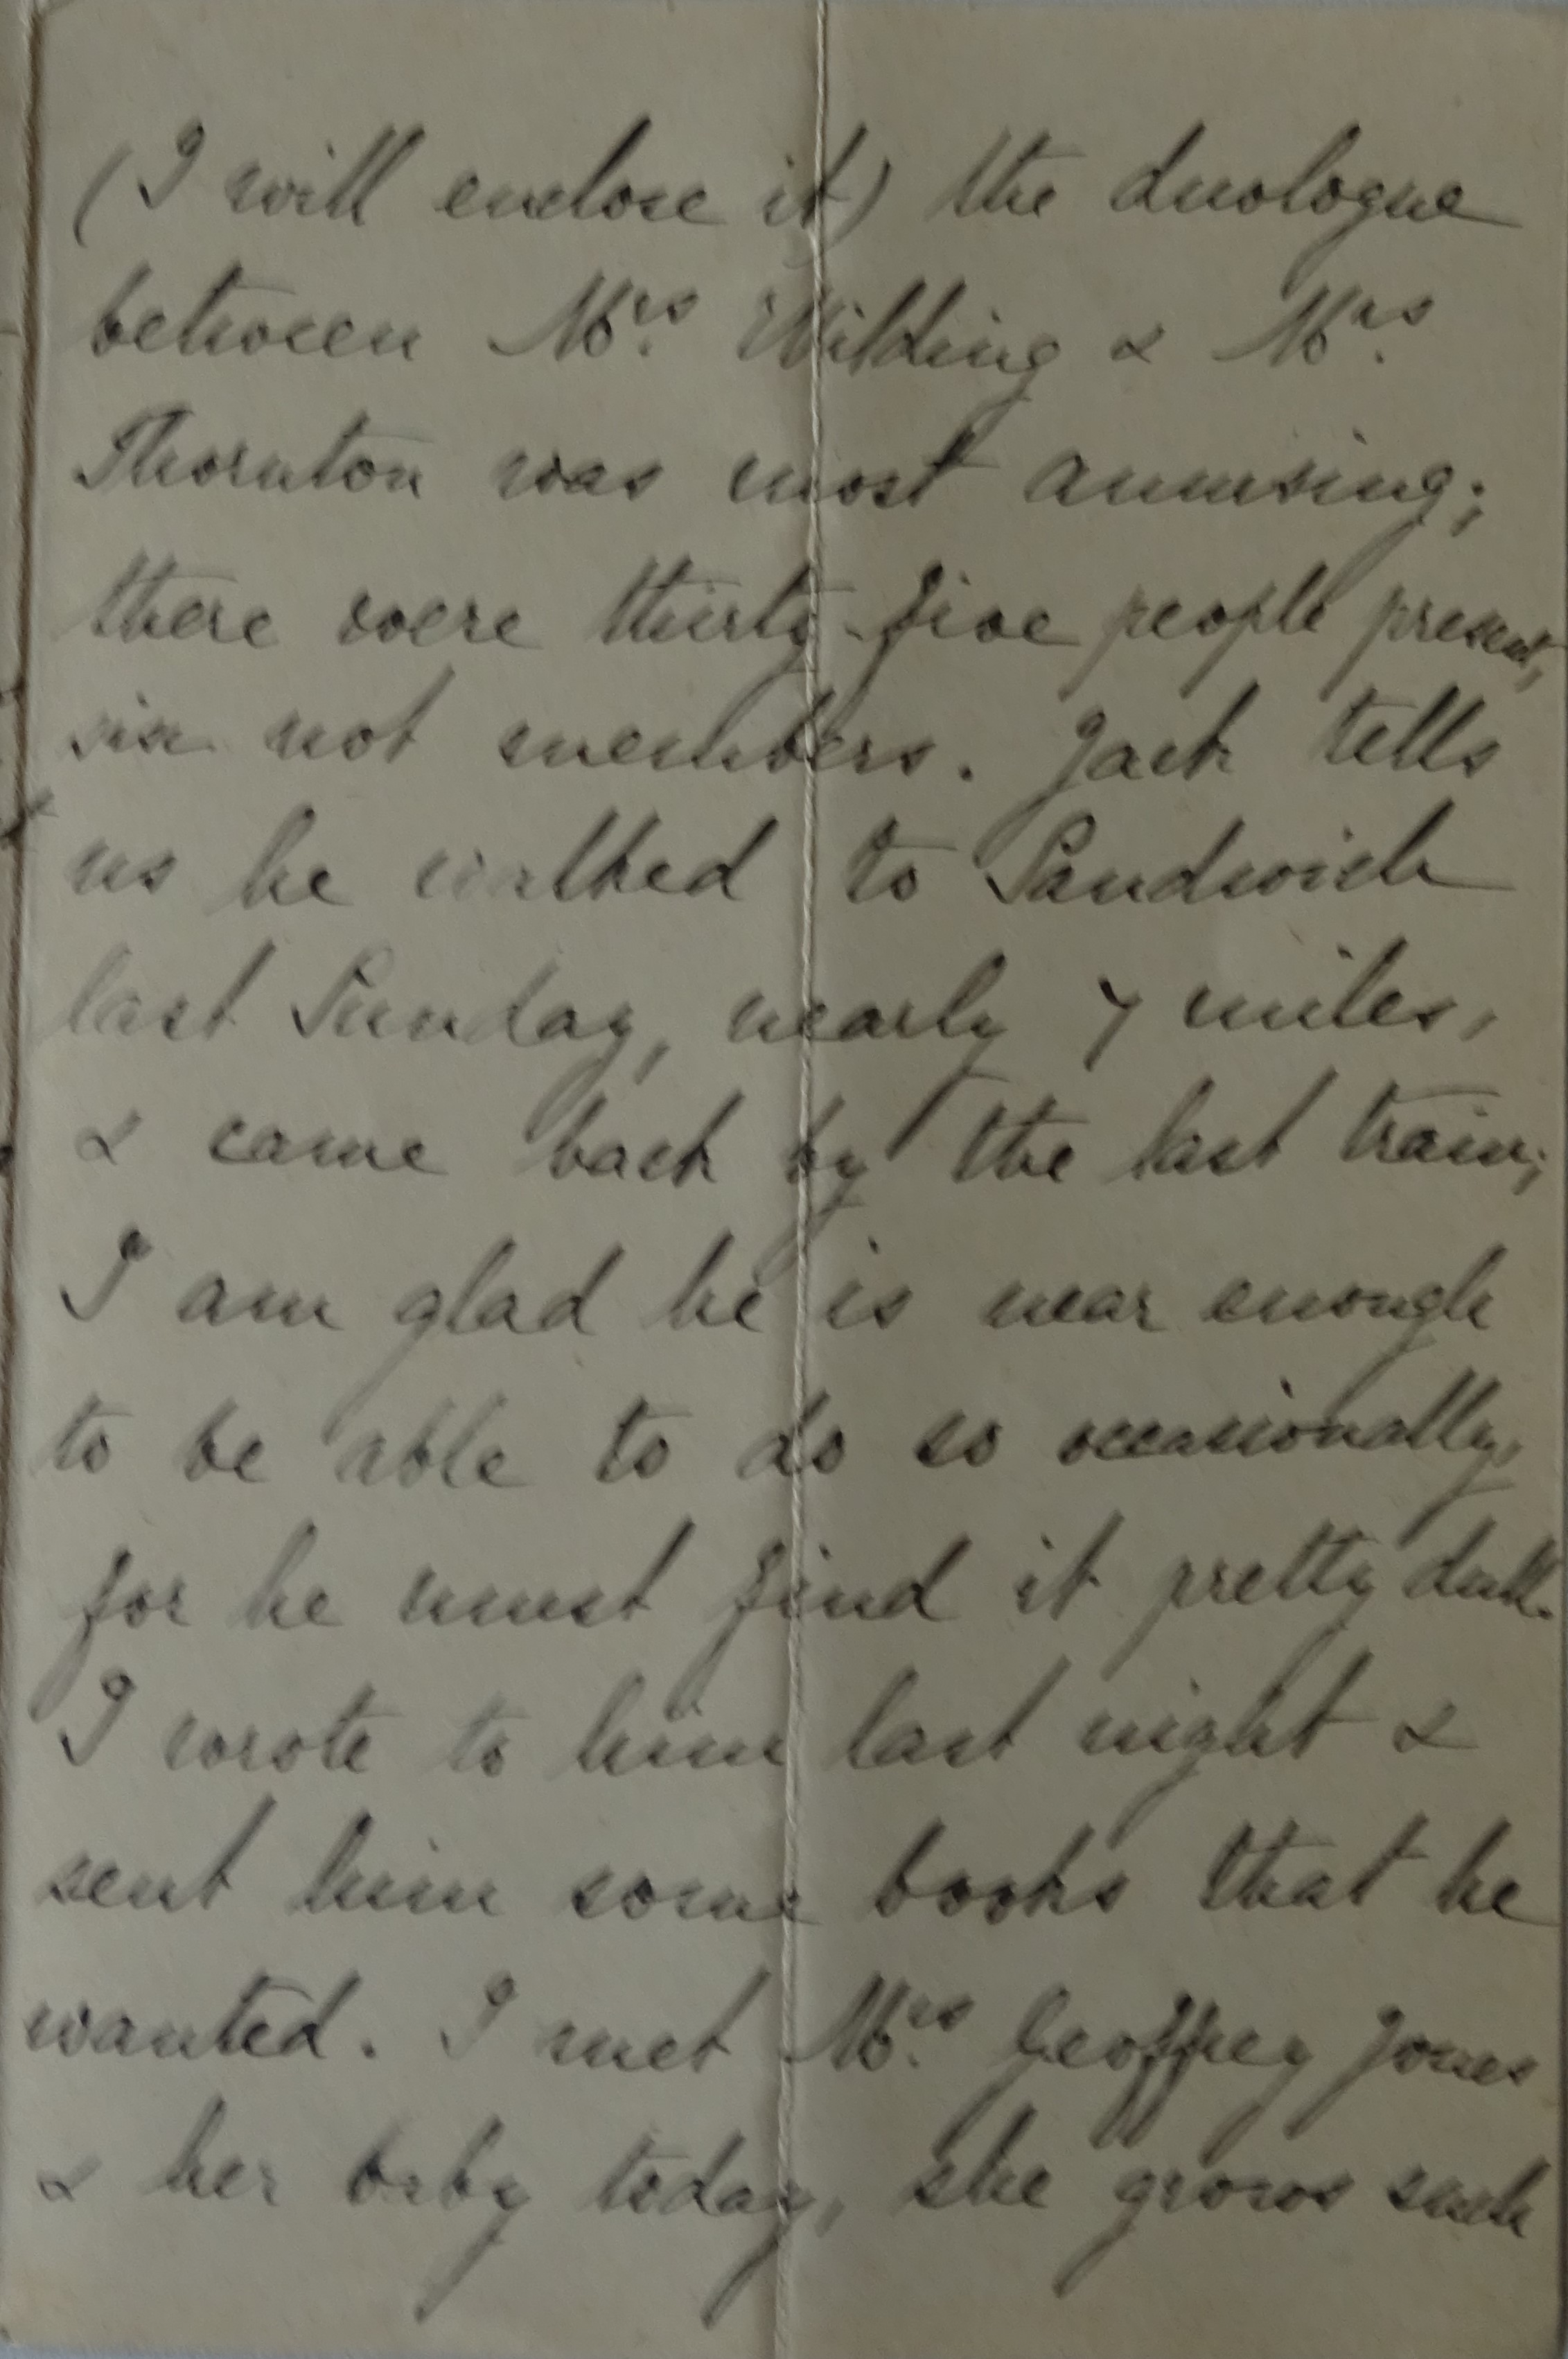 (I will enclose it) the duologue
between Mrs. Wilding & Mrs.
Thornton was most amusing;
there were thirty-five people present,
six not members. Jack tells
us he walked to Sandwich
last Sunday, nearly 7 miles,
& came back by the last train;
I am glad he is near enough
to be able to do so occasionally,
for he must find it pretty dull.
I wrote to him last night &
sent him some books that he
wanted. I met Mrs. Geoffrey Jones
& her baby today, she grows such